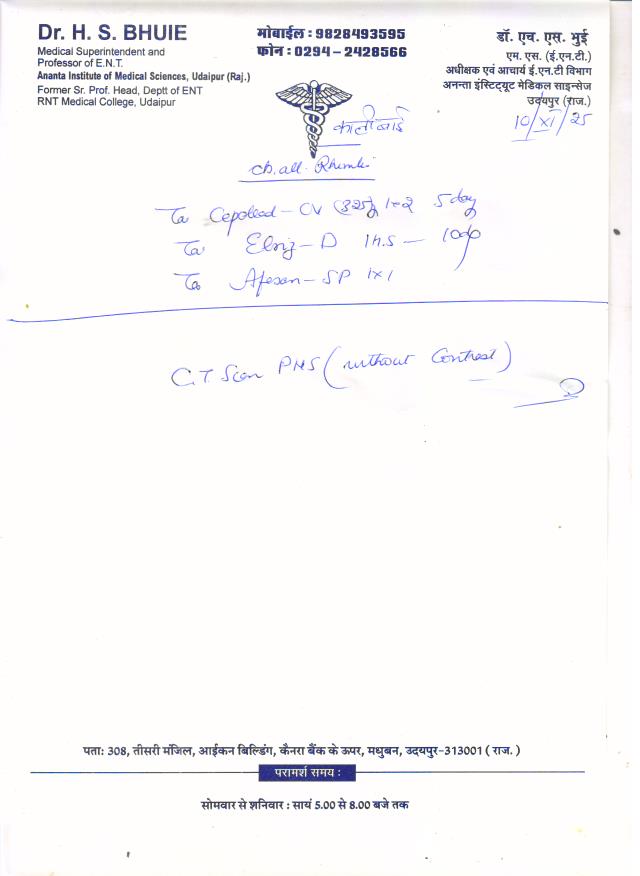 Dr. H. S. BHUIE
Medical Superintendent and
Professor of E.N.T.
Ananta Institute of Medical Sciences, Udaipur (Raj.)
Former Sr. Prof. Head, Deptt of ENT
RNT Medical College, Udaipur
मोबाईल : 9828493595
फोन : 0294 – 2428566
डॉ. एच. एस. भुई
एम. एस. (ई.एन.टी.)
अधीक्षक एवं आचार्य ई.एन.टी विभाग
अनन्ता इंस्टिट्यूट मेडिकल साइन्सेज
उदयपुर (राज.)
10/XI/25
कालीबाई
ch. all.
Ta – CV (325) 1×2 5 day
Ta – D 1 h.s –
Ta – SP 1×1
C.T. Scan PNS (without Contrast)
पताः 308, तीसरी मंजिल, आईकन बिल्डिंग, कैनरा बैंक के ऊपर, मधुबन, उदयपुर-313001 ( राज. )
परामर्श समय :
सोमवार से शनिवार : सायं 5.00 से 8.00 बजे तक